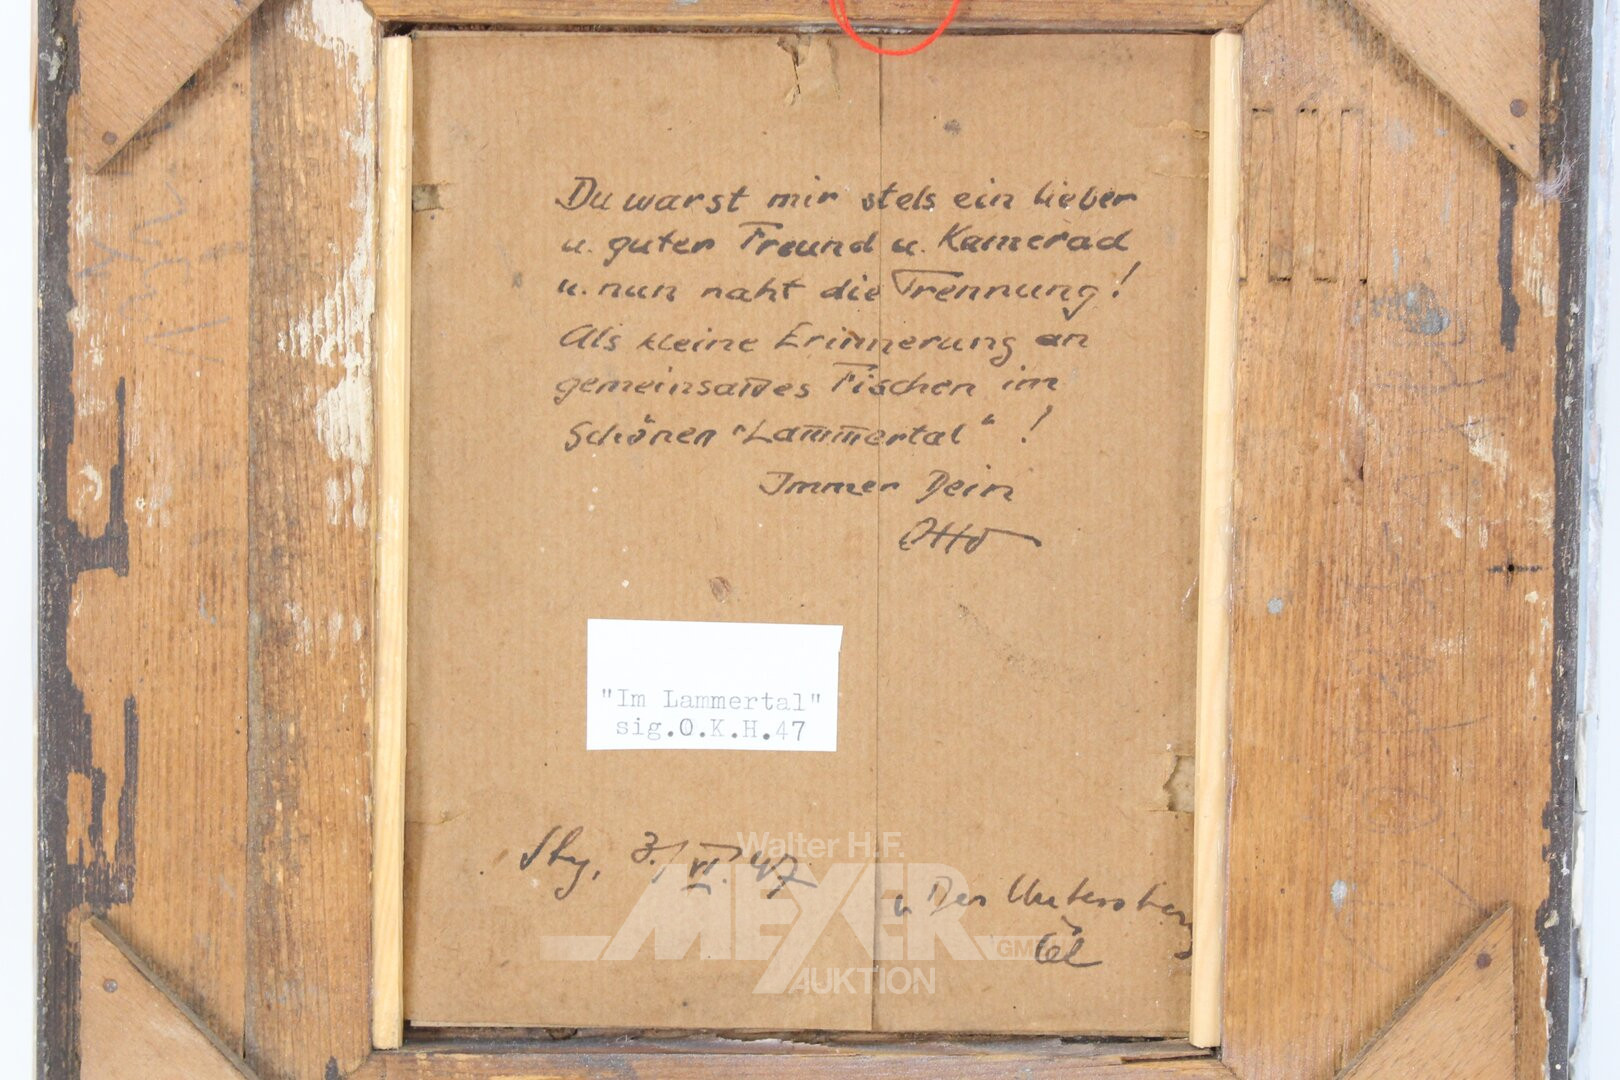 Du warst mir stets ein lieber
u. guter Freund u. Kamerad
u. nun naht die Trennung!
Als kleine Erinnerung an
gemeinsames Fischen im
schönen "Lammertal" !
Immer Dein
Otto
"Im Lammertal"
sig.O.K.H.47
Sbg, 3./VI. 47
Walter H.F.
MEYER
GMBH
AUKTION
" Der Untersberg
Öl